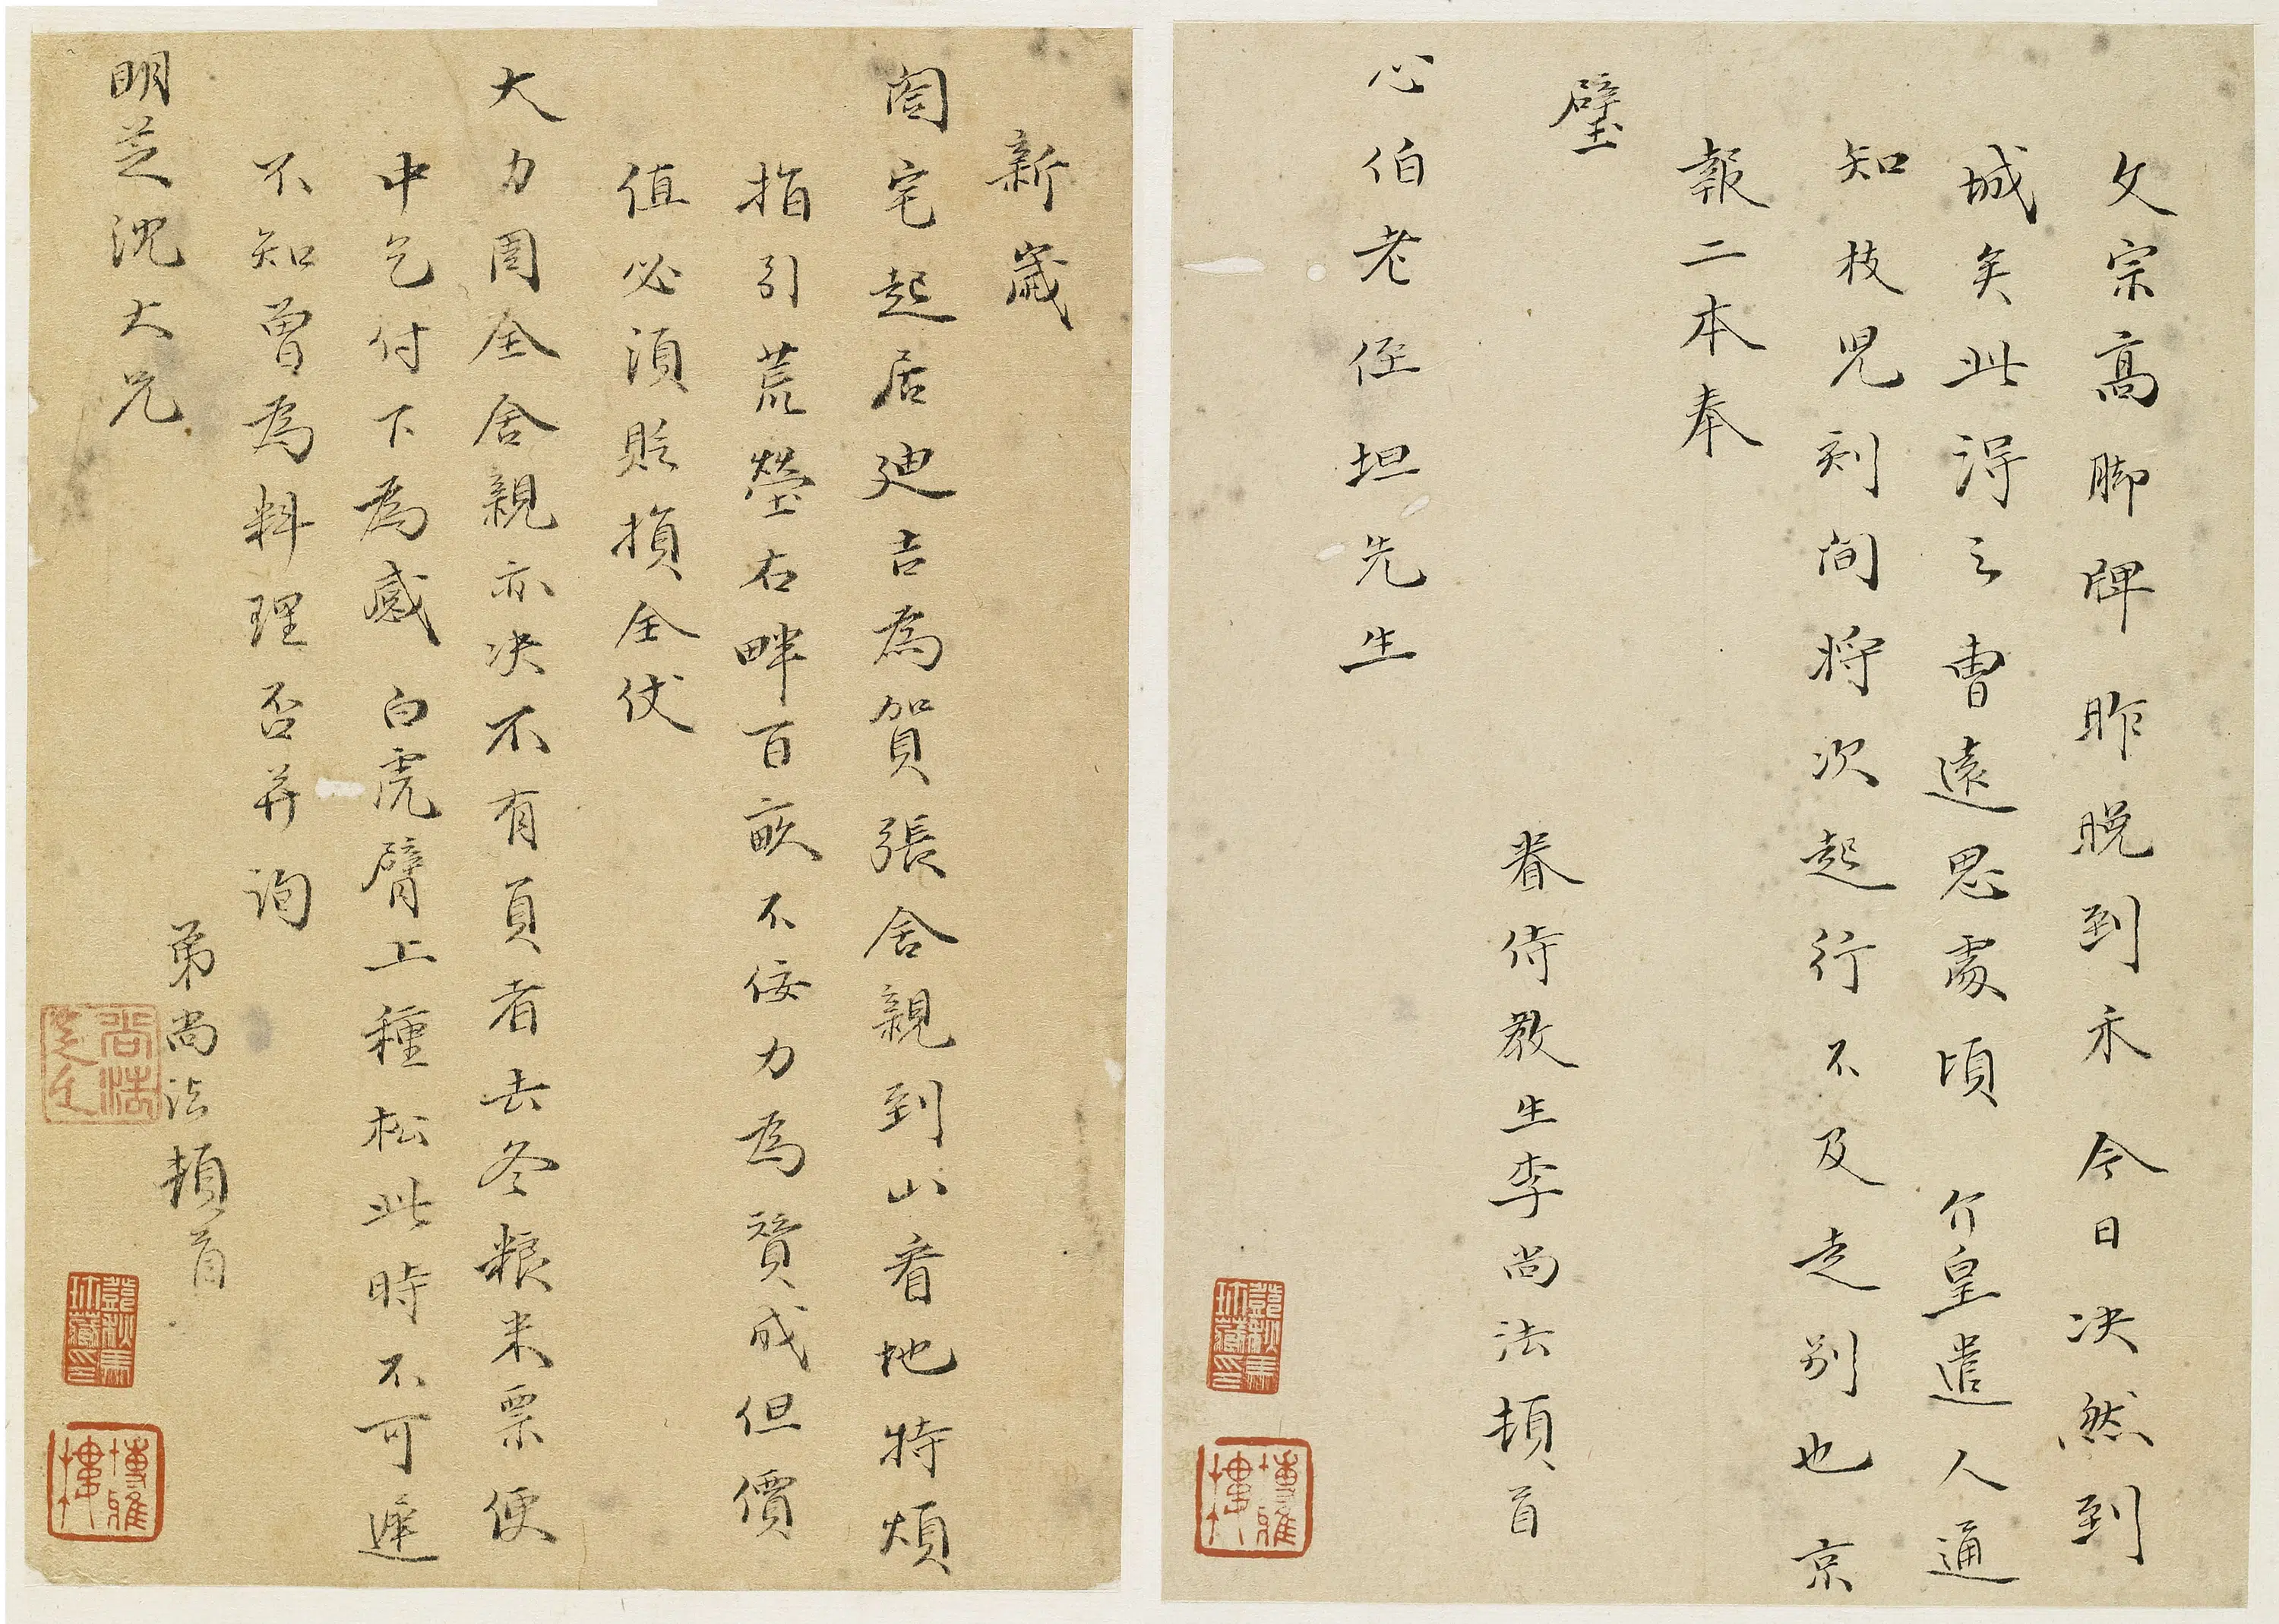 文宗高脚牌昨晚到禾今日决然到
城矣此得之曹遠思處頃 介皇遣人通
知枝兒刻間將次起行不及走別也京
報二本奉
璧
眷侍教生李尚法頓首
心伯老侄坦先生
新歲
閤宅起居迪吉為賀張舍親到山看地特煩
指引荒塋右畔百畝不佞力為贊成但價
值必須貶損全仗
大力周全舍親亦决不有負者去冬粮米票便
中乞付下為感 白虎臂上種松此時不可遲
不知曾為料理否并詢
弟尚法頓首
明芝沈大兄